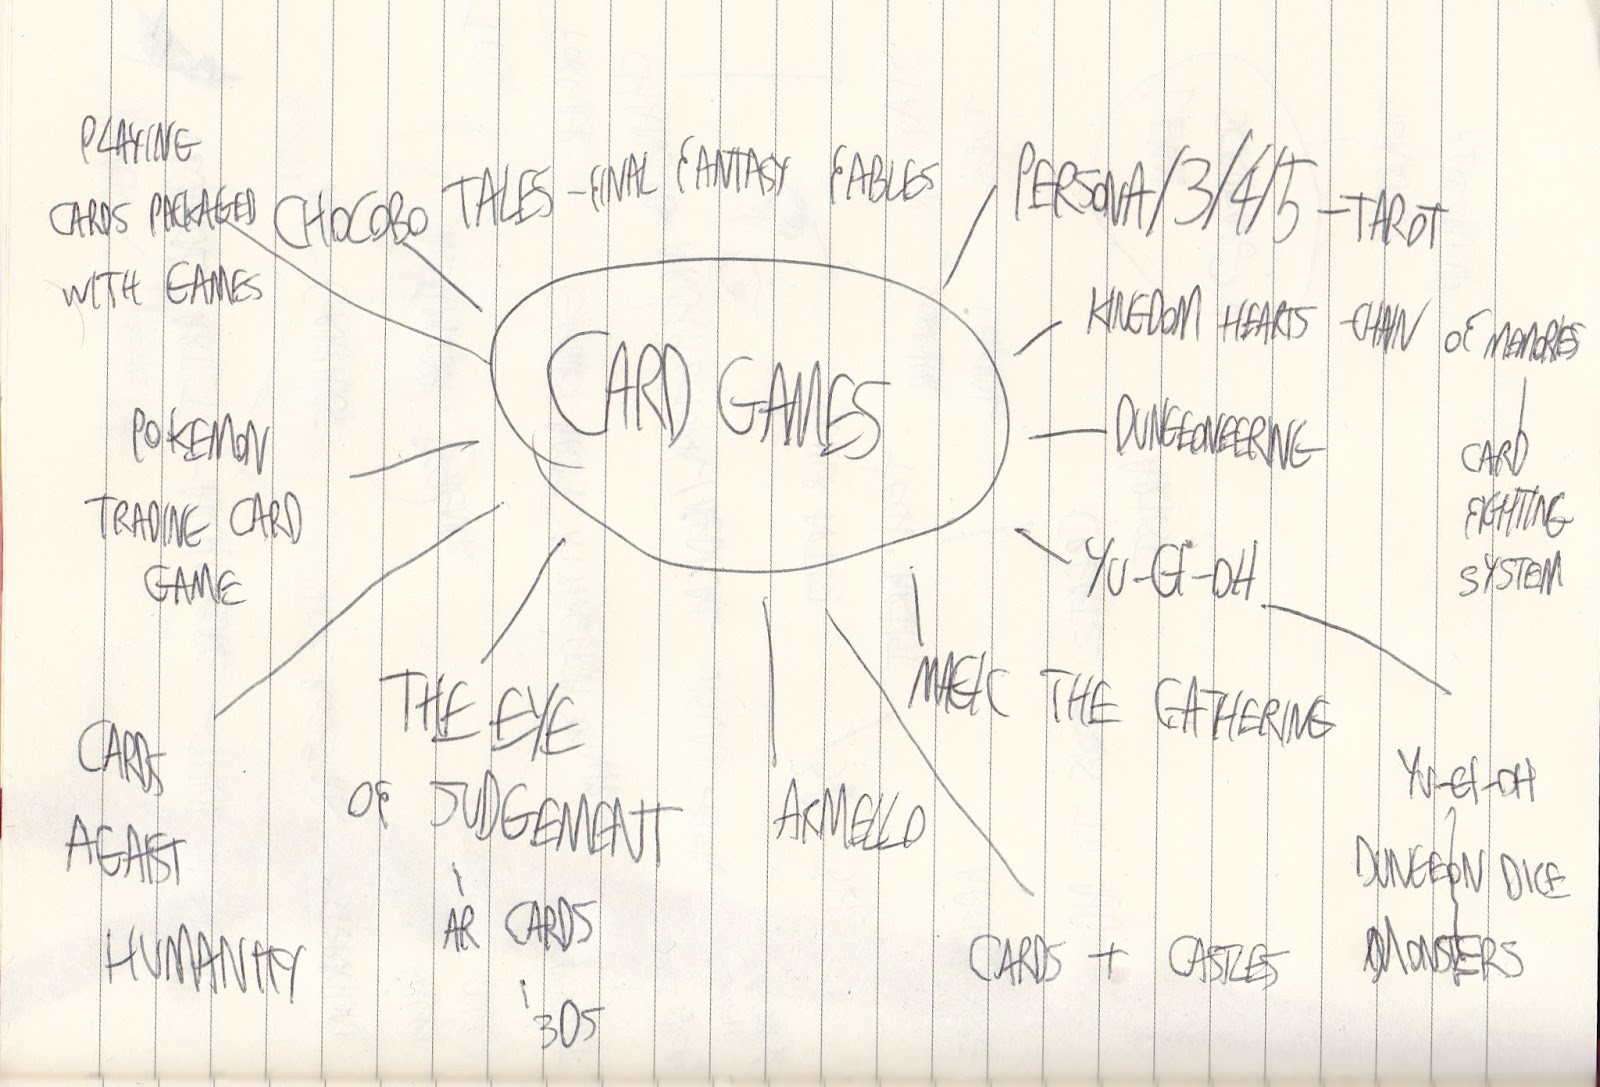 PLAYING
CARDS PACKAGED
WITH GAMES
CHOCOBO TALES - FINAL FANTASY FABLES
PERSONA/3/4/5 - TAROT
KINGDOM HEARTS - CHAIN OF MEMORIES
CARD
FIGHTING
SYSTEM
CARD GAMES
DUNGEONEERING
POKEMON
TRADING CARD
GAME
YU-GI-OH
YU-GI-OH
DUNGEON DICE
MONSTERS
MAGIC THE GATHERING
CARDS + CASTLES
ARMELLO
THE EYE
OF JUDGEMENT
AR CARDS
3DS
CARDS
AGAINST
HUMANITY